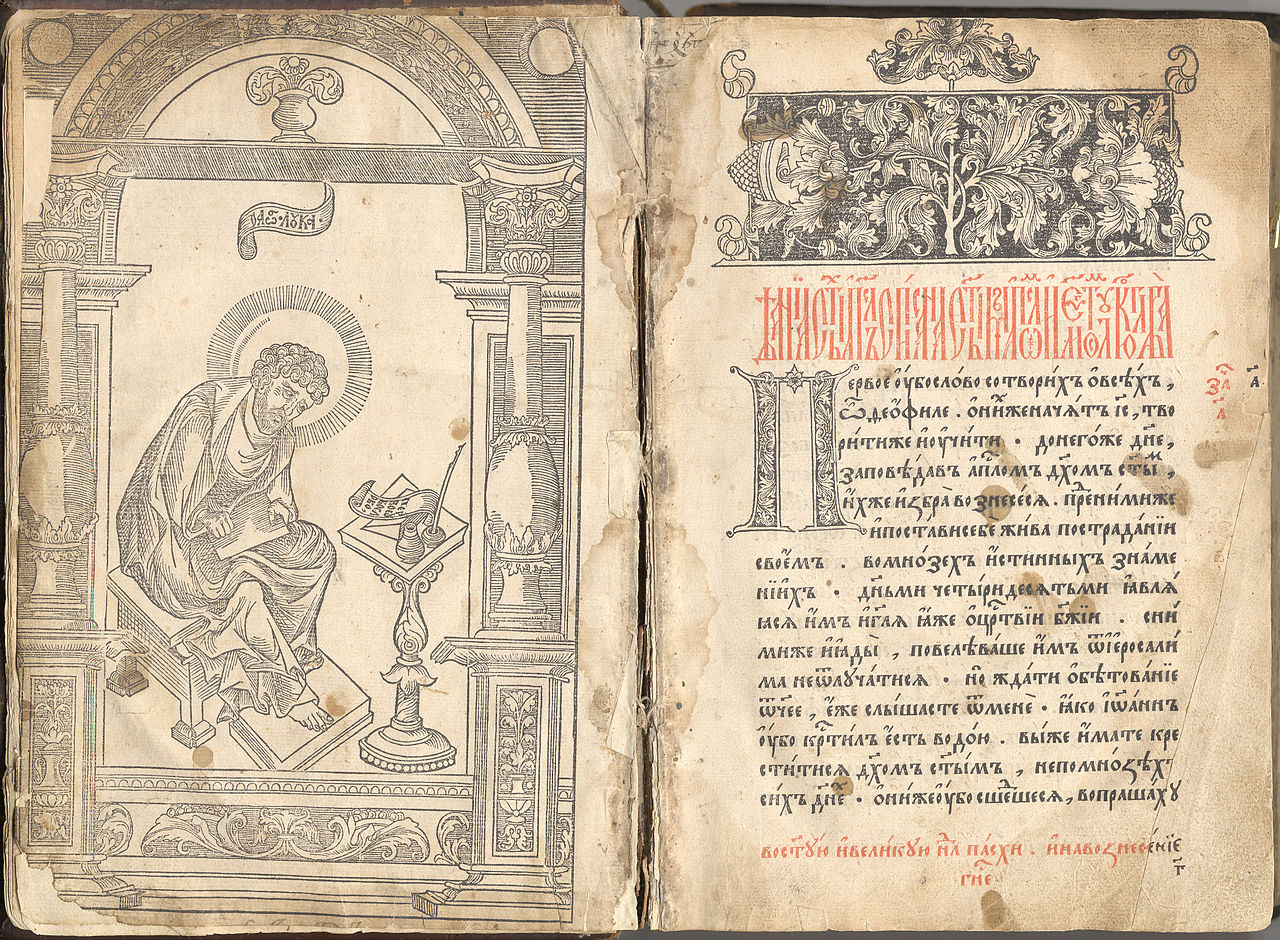 лꙋка
ервоеꙋ҆́бослово сотвори́хъ ѻ҆всѣ́хъ,
ѽ҆део́филе. ѻ҆ни́хженача́тъ і҆с҃, тво
ри́тиже и҆ᲂу҆чи́ти · донего́же дн҃е,
заповѣ́давъ а҆пⷭ҇ломъ дх҃омъ ст҃ы́ⷨ,
и҆́хже и҆збра̀ вознесе́ся. преⷣни́миже
и҆поста́висебе жи́ва пострада́нїи
свое́мъ. вомно́зехъ и҆́стинныхъ зна́ме
нїи҆хъ · дн҃ьми четы́ридесятьми ꙗ҆влѧ́
ꙗся и҆̀мъ и҆гл҃я ꙗ҆́же ѻ҆црⷭ҇твїи бж҃їи. сни́
миже и҆ꙗды̀, повелѣва́ше и҆̀мъ ѿі҆ероса́ли
ма неѿлуча́тися · но жда́ти ѻ҆бѣтова́нїе
ѿч҃ее, е҆́же слы́шасте ѿменѐ · ꙗ҆́ко і҆ѡ҆́аннъ
ᲂу҆́бо крⷭ҇ти́лъ є҆́сть водо́ю. вы́же и҆́мате кре
сти́тися дх҃омъ ст҃ы́мъ, непомно́зѣхъ
си́хъ дн҃еⷯ · ѻ҆ни́жеᲂу҆́бо сше́дшеся, вопраша́хꙋ
востꙋ́ю и҆вели́кꙋю нⷣлю па́схи. и҆ навознесе́нїе
гн҃е